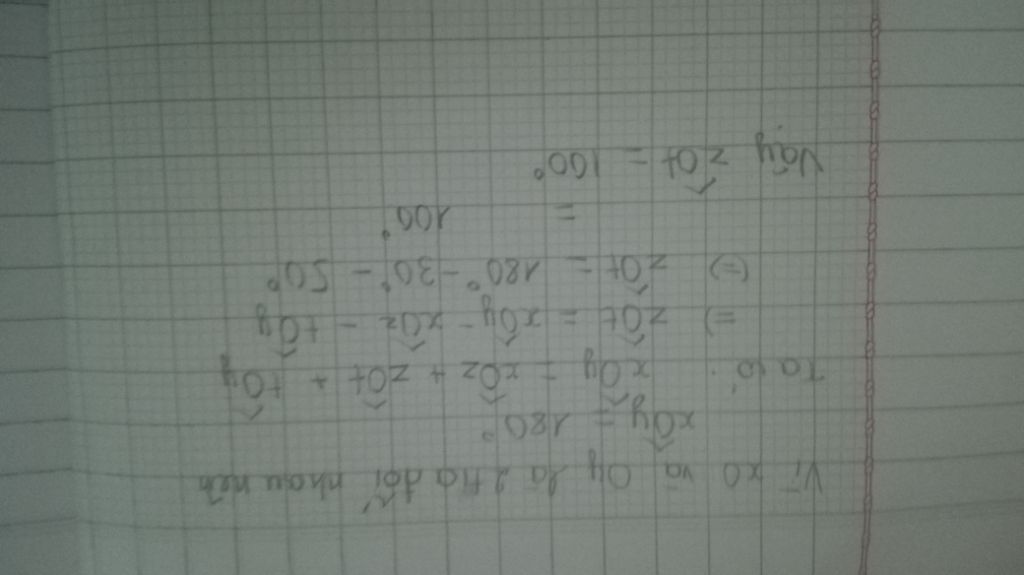 Vì xO và Oy là 2 tia đối nhau nên
xÔy = 180°
Ta có: xÔy = xÔz + zÔt + tÔy
=) zÔt = xÔy - xÔz - tÔy
(=) zÔt = 180° - 30° - 50°
= 100°
Vậy zÔt = 100°